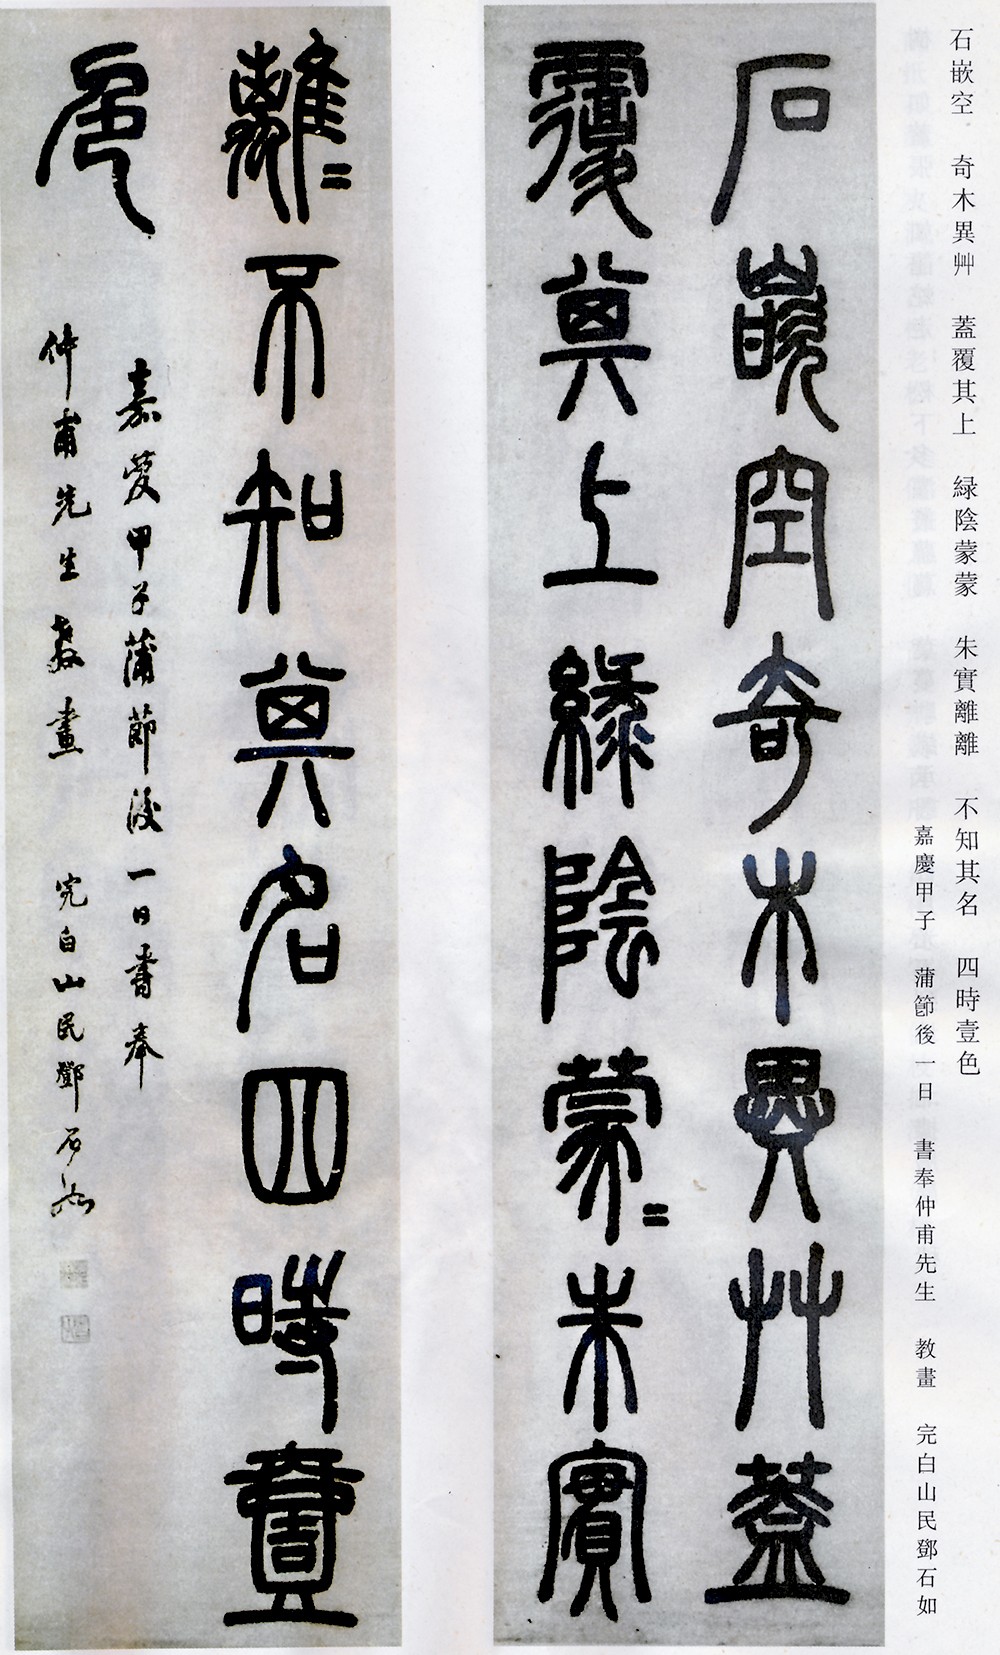 石嵌空　奇木異艸　蓋覆其上　緑陰蒙蒙　朱實離離　不知其名　四時壹色
嘉慶甲子　蒲節後一日　書奉仲甫先生　教畫　完白山民鄧石如
石嵌空奇木異艸蓋
覆其上緑陰蒙〻朱實
離〻不知其名四時壹
色
嘉慶甲子蒲節後一日書奉
仲甫先生教畫　完白山民鄧石如